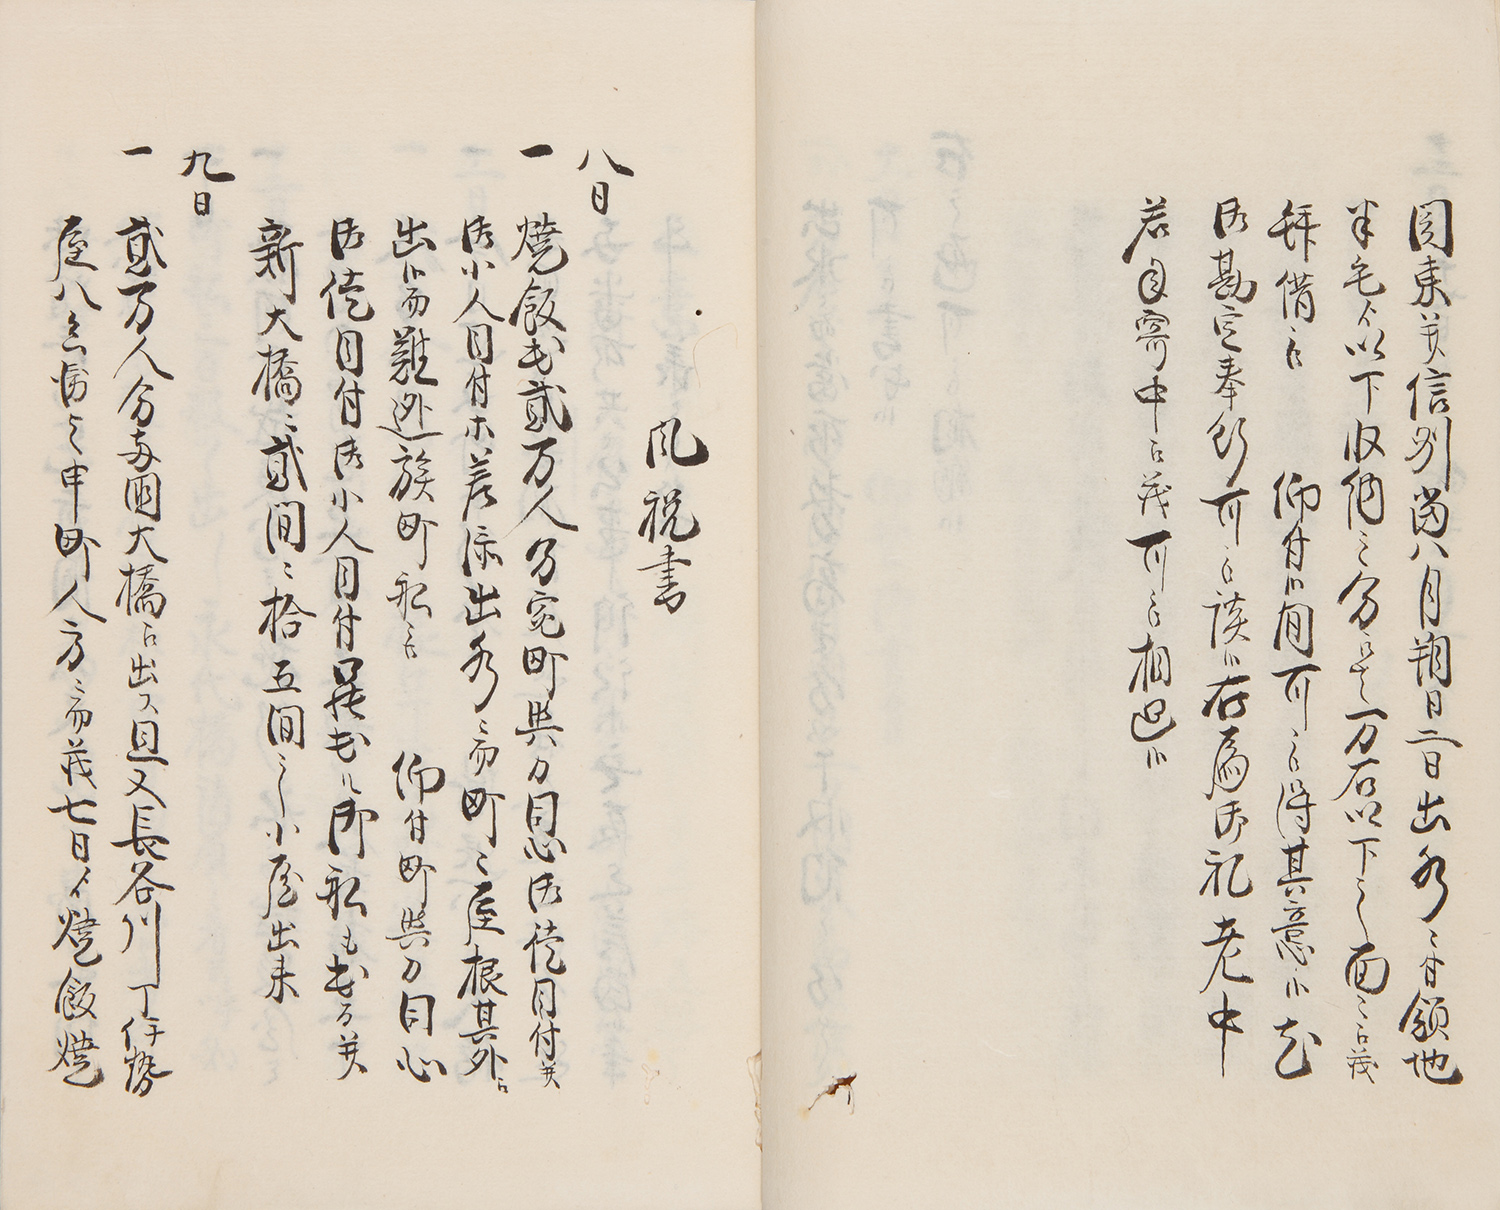 関東并信州当八月朔日二日出水ニ付領地
半毛ゟ以下収納之分ニ而一万石以下之面々江茂
拝借被　仰付候間可被得其意候尤
御勘定奉行可被談候右為御礼老中
若年寄中江茂可被相廻候
風祝書
八日
一
焼飯出弐万人分宛町与力同心御徒目付并
御小人目付等差添出水ニ而町々屋根其外江
出候而難遁族町船ニ而　仰付町与力同心
御徒目付御小人目付昼出候御船も出る并
新大橋ニ弐間ニ拾五間之小屋出来
九日
一
弐万人分両国大橋江出ス且又長谷川丁伊勢
屋八兵衛与申町人方ニ而茂七日ゟ焼飯焼